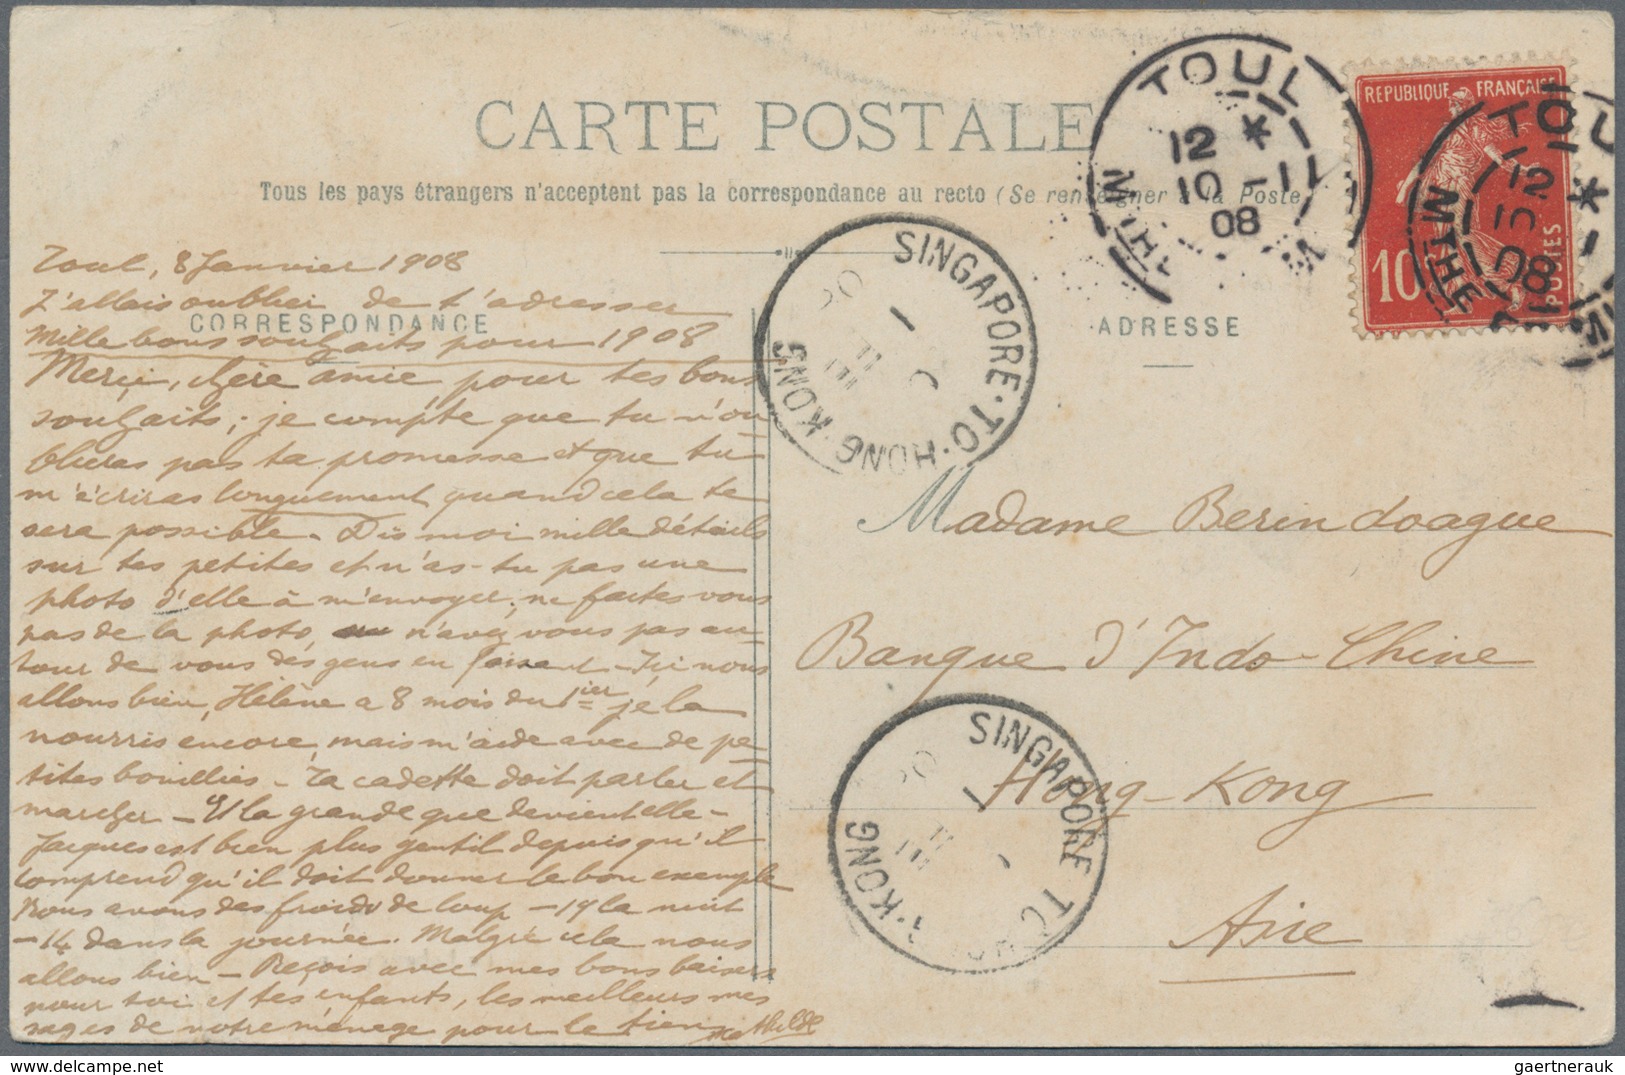 CARTE POSTALE
Tous les pays étrangers n'acceptent pas la correspondance au recto (Se renseigner à la Poste
TOUL
12 *
10 - 1
08
REPUBLIQUE FRANÇAISE
10
POSTES
TOUL
08
SINGAPORE · TO · HONG · KONG
CORRESPONDANCE
ADRESSE
Toul, 8 Janvier 1908
J'allais oublier de t'adresser
Mille bons souhaits pour 1908
Merçi, chère amie pour tes bons
souhaits; je compte que tu n'ou
blieras pas ta promesse et que tu
m'écriras longuement quand cela te
sera possible. Dis moi mille détails
sur tes petites et n'as-tu pas une
photo d'elle à m'envoyer, ne faites vous
pas de la photo, n'avez vous pas au-
tour de vous des gens en faisant - Ici nous
allons bien, Hélène a 8 mois du 1ier, je la
nourris encore, mais m'aide avec de pe
tites bouillies - Ta cadette doit parler et
marcher - Et la grande que devient elle -
Jacques est bien plus gentil depuis qu'il
comprend qu'il doit donner le bon exemple
Nous avons des froids de loup - 19 la nuit
- 14 dans la journée. Malgré cela nous
allons bien - Reçois avec mes bons baisers
pour toi et tes enfants, les meilleurs mes
sages de notre ménage pour le tien
Mathilde
Madame Berindoague
Banque d'Indo-Chine
Hong-Kong
Asie
SINGAPORE TO KONG
gaertnerauk